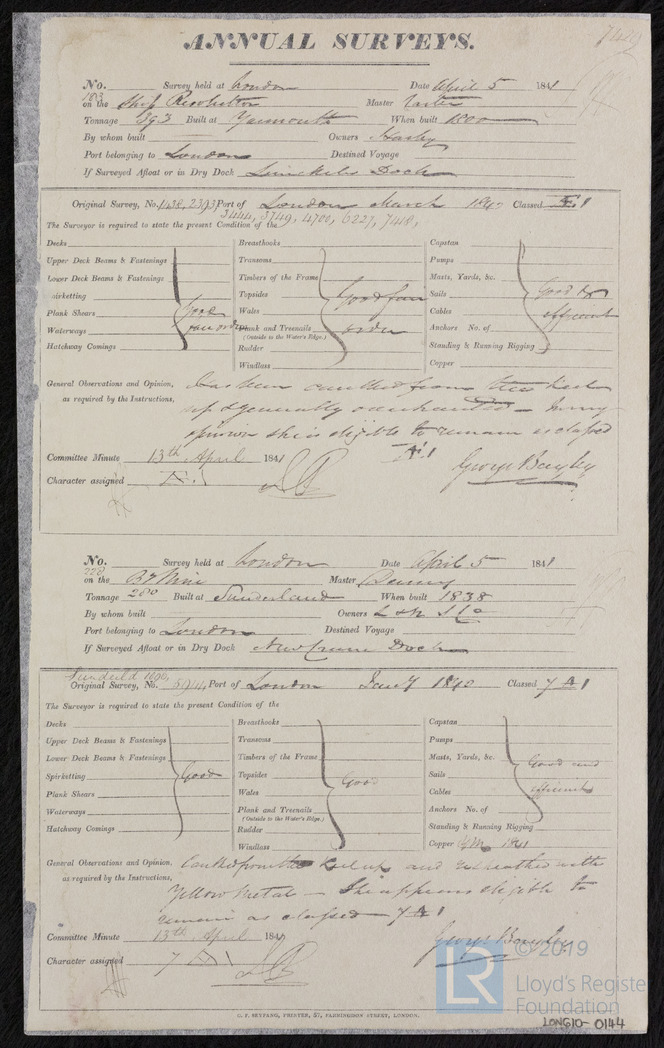 ANNUAL SURVEYS.
No. Survey held at London Date April 5 1841
on the Ship Resolution Master
Tonnage 393 Built at Yarmouth When built 1800
By whom built Owners
Port belonging to London Destined Voyage
If Surveyed Afloat or in Dry Dock Dock
Original Survey, No. 1438, 2393 Port of London March 1840 Classed Æ.1
3444, 3749, 4700, 6227, 7418,
The Surveyor is required to state the present Condition of the
Decks Breasthooks Capstan
Upper Deck Beams & Fastenings Transoms Pumps
Lower Deck Beams & Fastenings Timbers of the Frame Masts, Yards, &c.
Spirketting Topsides Good & fair Sails Good &
Plank Shears Good Wales Cables efficient
Waterways fair order Plank and Treenails order Anchors No. of
(Outside to the Water's Edge.)
Hatchway Comings Rudder Standing & Running Rigging
Windlass Copper
General Observations and Opinion, Has been caulked from keel
as required by the Instructions, up & generally overhauled – In my
opinion she is eligible to remain as classed
Æ.1
Committee Minute 13th April 1841 George Bayley
Character assigned Æ.1
No. Survey held at London Date April 5 1841
228
on the Bk Master
Tonnage 280 Built at Sunderland When built 1838
By whom built Owners & Co
Port belonging to London Destined Voyage
If Surveyed Afloat or in Dry Dock New Crane Dock
Sunderld
Original Survey, No. Port of London Jany 1840 Classed 7 A 1
The Surveyor is required to state the present Condition of the
Decks Breasthooks Capstan
Upper Deck Beams & Fastenings Transoms Pumps
Lower Deck Beams & Fastenings Timbers of the Frame Masts, Yards, &c. Good and
Spirketting Good Topsides Good Sails
Plank Shears Wales Cables efficient
Waterways Plank and Treenails Anchors No. of
(Outside to the Water's Edge.)
Hatchway Comings Rudder Standing & Running Rigging
Windlass Copper Y.M. 1841
General Observations and Opinion, Caulked from the Keel up and resheathed with
as required by the Instructions, Yellow Metal – She appears eligible to
remain as classed – 7 A 1
Committee Minute 13th April 1841 George Bayley
Character assigned 7 A 1
© 2019
LR
Lloyd's Register
Foundation
C. F. SEYFANG, PRINTER, 57, FARRINGDON STREET, LONDON.
LON610-0144